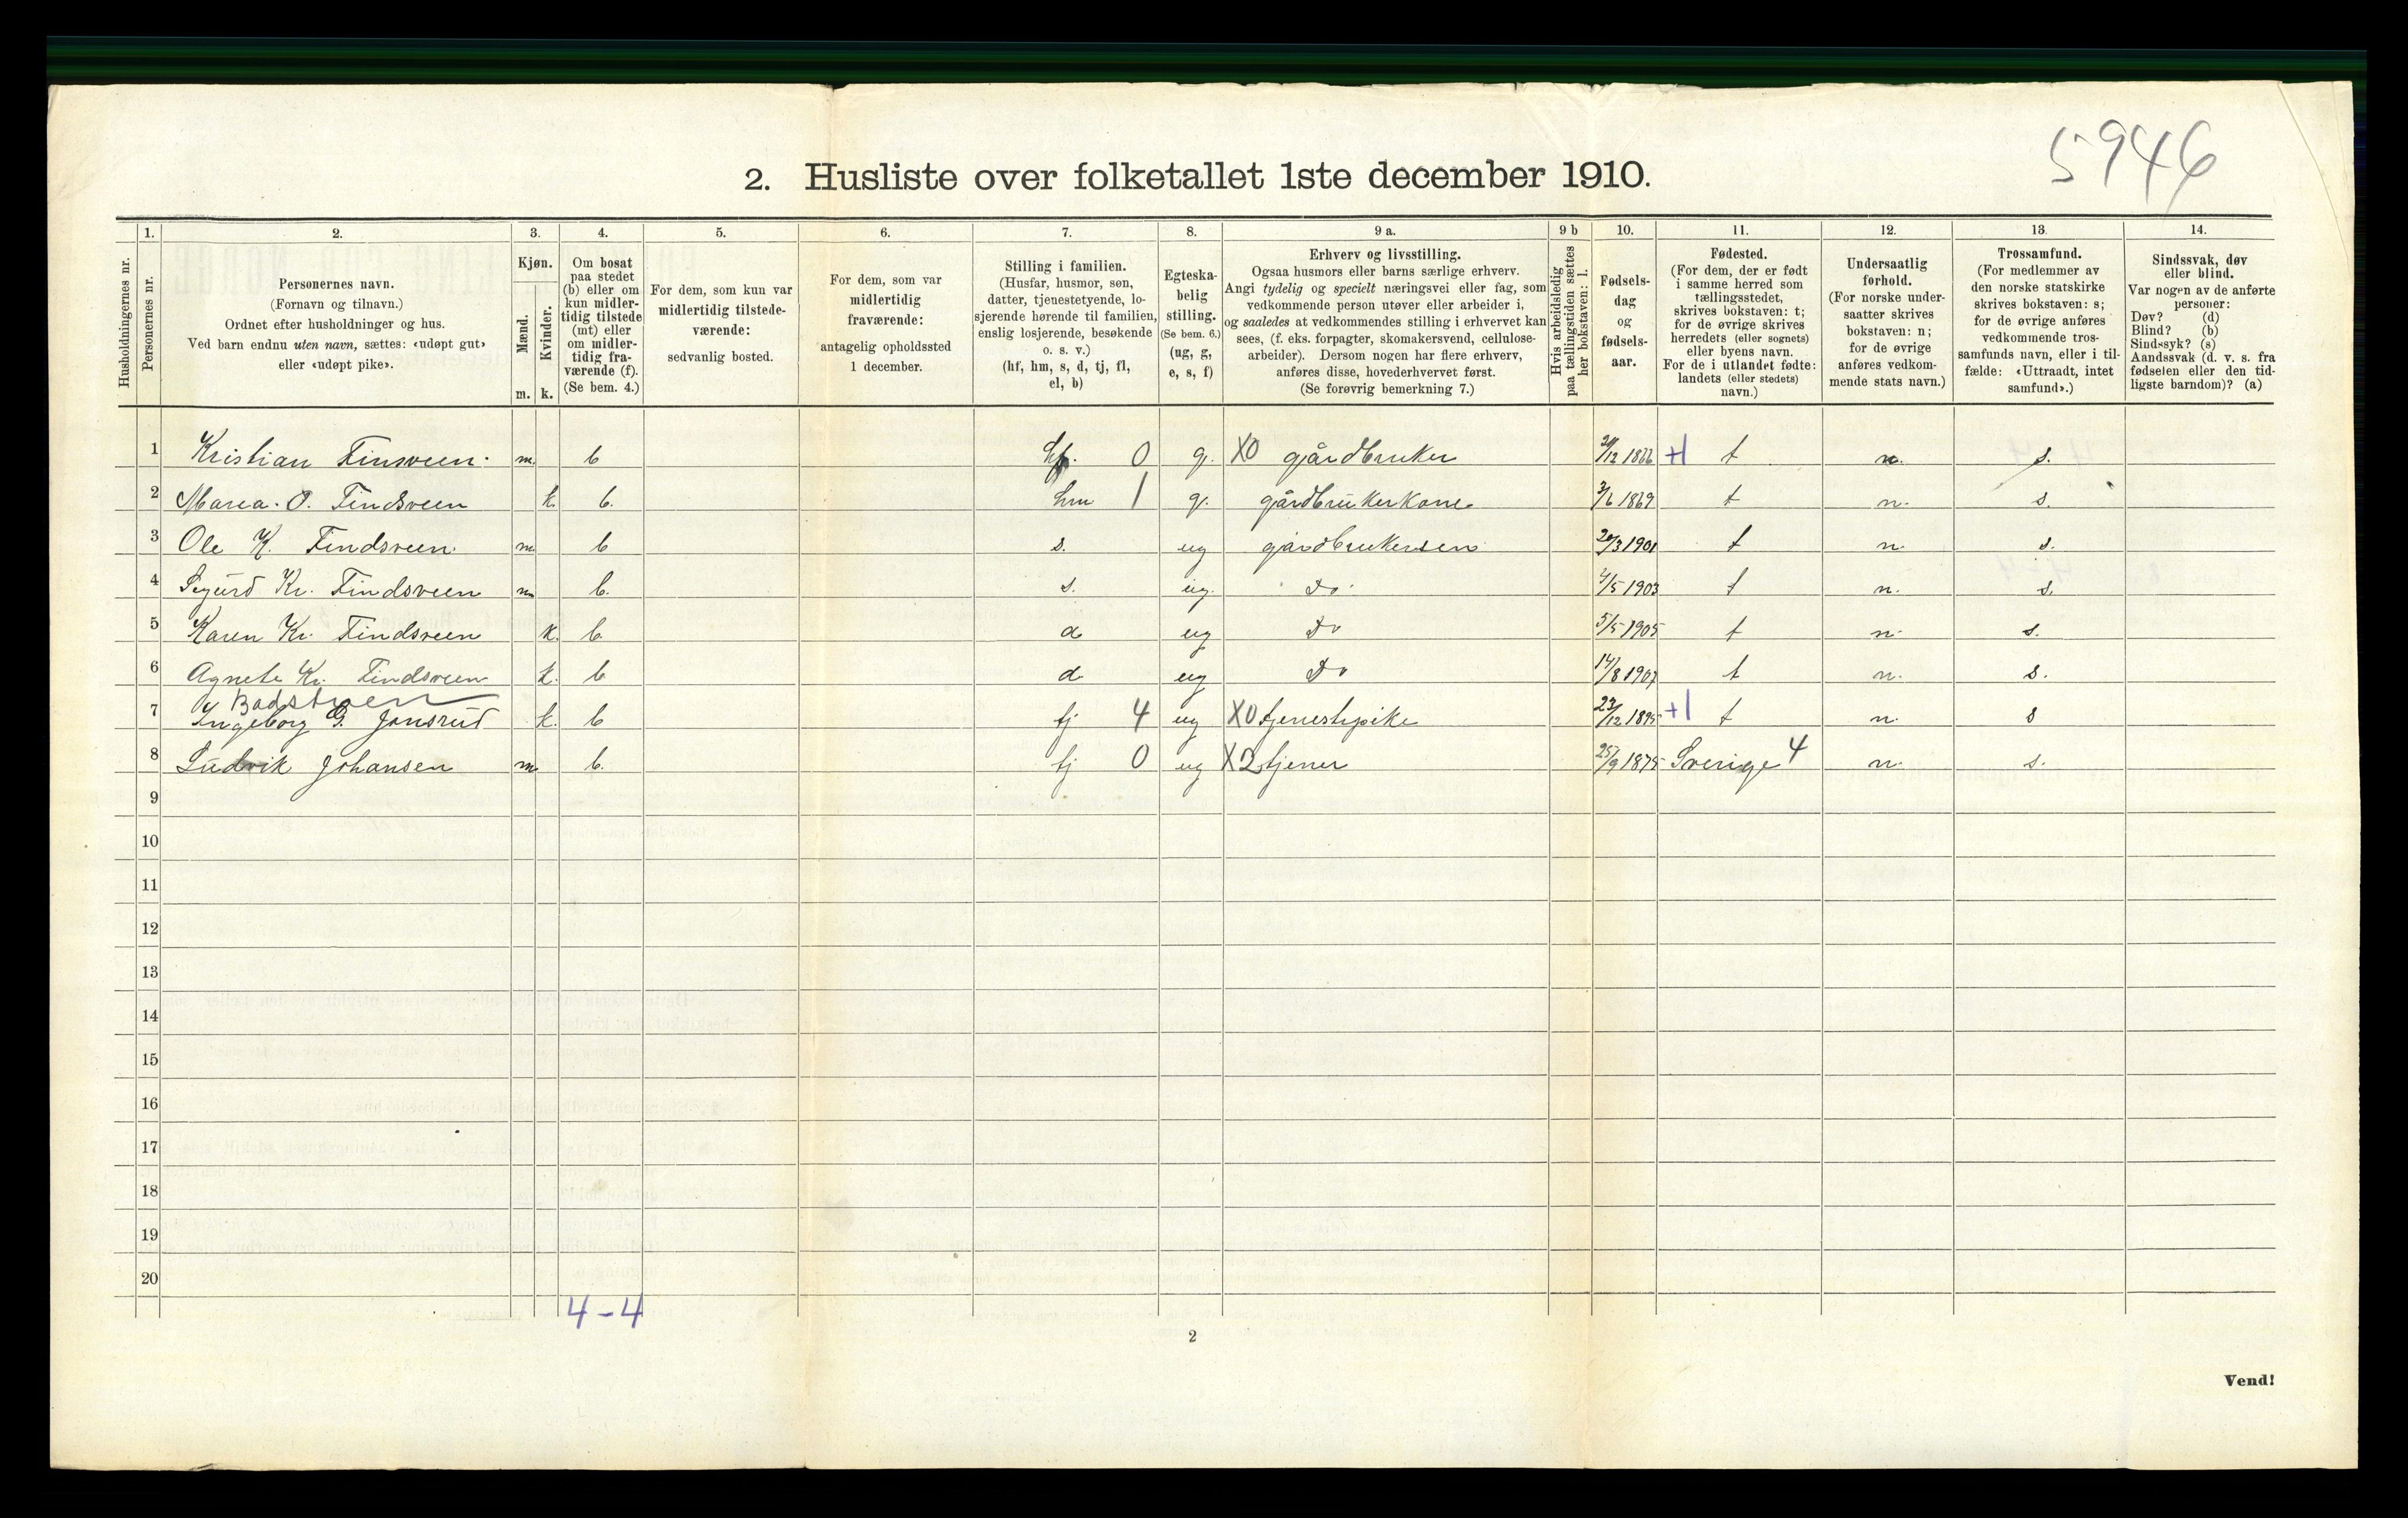 5946
2. Husliste over folketallet 1ste december 1910.
Husholdningernes nr.
1.
Personernes nr.
2.
Personernes navn.
(Fornavn og tilnavn.)
Ordnet efter husholdninger og hus.
Ved barn endnu uten navn, sættes: «udøpt gut»
eller «udøpt pike».
3.
Kjøn.
Mænd.
Kvinder.
m. k.
4.
Om bosat
paa stedet
(b) eller om
kun midler-
tidig tilstede
(mt) eller
om midler-
tidig fra-
værende (f).
(Se bem. 4.)
5.
For dem, som kun var
midlertidig tilstede-
værende:
sedvanlig bosted.
6.
For dem, som var
midlertidig
fraværende:
antagelig opholdssted
1 december.
7.
Stilling i familien.
(Husfar, husmor, søn,
datter, tjenestetyende, lo-
sjerende hørende til familien,
enslig losjerende, besøkende
o. s. v.)
(hf, hm, s, d, tj, fl,
el, b)
8.
Egteska-
belig
stilling.
(Se bem. 6.)
(ug, g,
e, s, f)
9 a.
Erhverv og livsstilling.
Ogsaa husmors eller barns særlige erhverv.
Angi tydelig og specielt næringsvei eller fag, som
vedkommende person utøver eller arbeider i,
og saaledes at vedkommendes stilling i erhvervet kan
sees, (f. eks. forpagter, skomakersvend, cellulose-
arbeider). Dersom nogen har flere erhverv,
anføres disse, hovederhvervet først.
(Se forøvrig bemerkning 7.)
9 b
Hvis arbeidsledig
paa tællingstiden sættes
her bokstaven: l.
10.
Fødsels-
dag
og
fødsels-
aar.
11.
Fødested.
(For dem, der er født
i samme herred som
tællingsstedet,
skrives bokstaven: t;
for de øvrige skrives
herredets (eller sognets)
eller byens navn.
For de i utlandet fødte:
landets (eller stedets)
navn.)
12.
Undersaatlig
forhold.
(For norske under-
saatter skrives
bokstaven: n;
for de øvrige
anføres vedkom-
mende stats navn.)
13.
Trossamfund.
(For medlemmer av
den norske statskirke
skrives bokstaven: s;
for de øvrige anføres
vedkommende tros-
samfunds navn, eller i til-
fælde: «Uttraadt, intet
samfund».)
14.
Sindssvak, døv
eller blind.
Var nogen av de anførte
personer:
Døv? (d)
Blind? (b)
Sindssyk? (s)
Aandssvak (d. v. s. fra
fødselen eller den tid-
ligste barndom)? (a)
1 Kristian Finsveen. m. b hf. 0 g. X0 gårdbruker 20/12 1866 +1 t n. s.
2 Marea. O. Findsveen k. b. hm 1 g. gårdbrukerkone 3/6 1869 t n. s.
3 Ole K. Findsveen. m b s. ug gårdbrukersøn 20/3 1901 t n. s.
4 Sigurd Kr. Findsveen m b. s. ug. Do 4/5 1903 t n. s.
5 Karen Kr. Findsveen k. b. d ug Do 5/5 1905 t n. s.
6 Agnete Kr. Findsveen k. b d ug Do 14/8 1907 t n. s.
Badstuen
7 Ingeborg G. Jonsrud k. b tj 4 ug X0 tjenestepike 23/12 1895 +1 t n. s
8 Ludvik Johansen m b. tj 0 ug X2 tjener 25/9 1875 Sverige 4 n. s.
9
10
11
12
13
14
15
16
17
18
19
20
4-4
2
Vend!